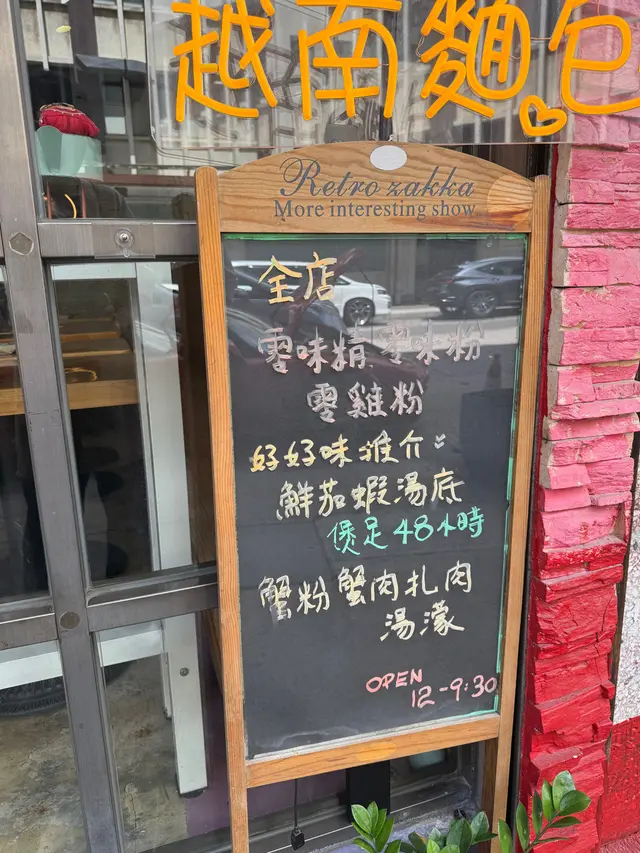 越南麵包
Retro zakka
More interesting show
全店
零味精 零味粉
零雞粉
好好味推介:
鮮茄蝦湯底
煲足48小時
蟹粉蟹肉扎肉
湯濛
OPEN
12-9:30